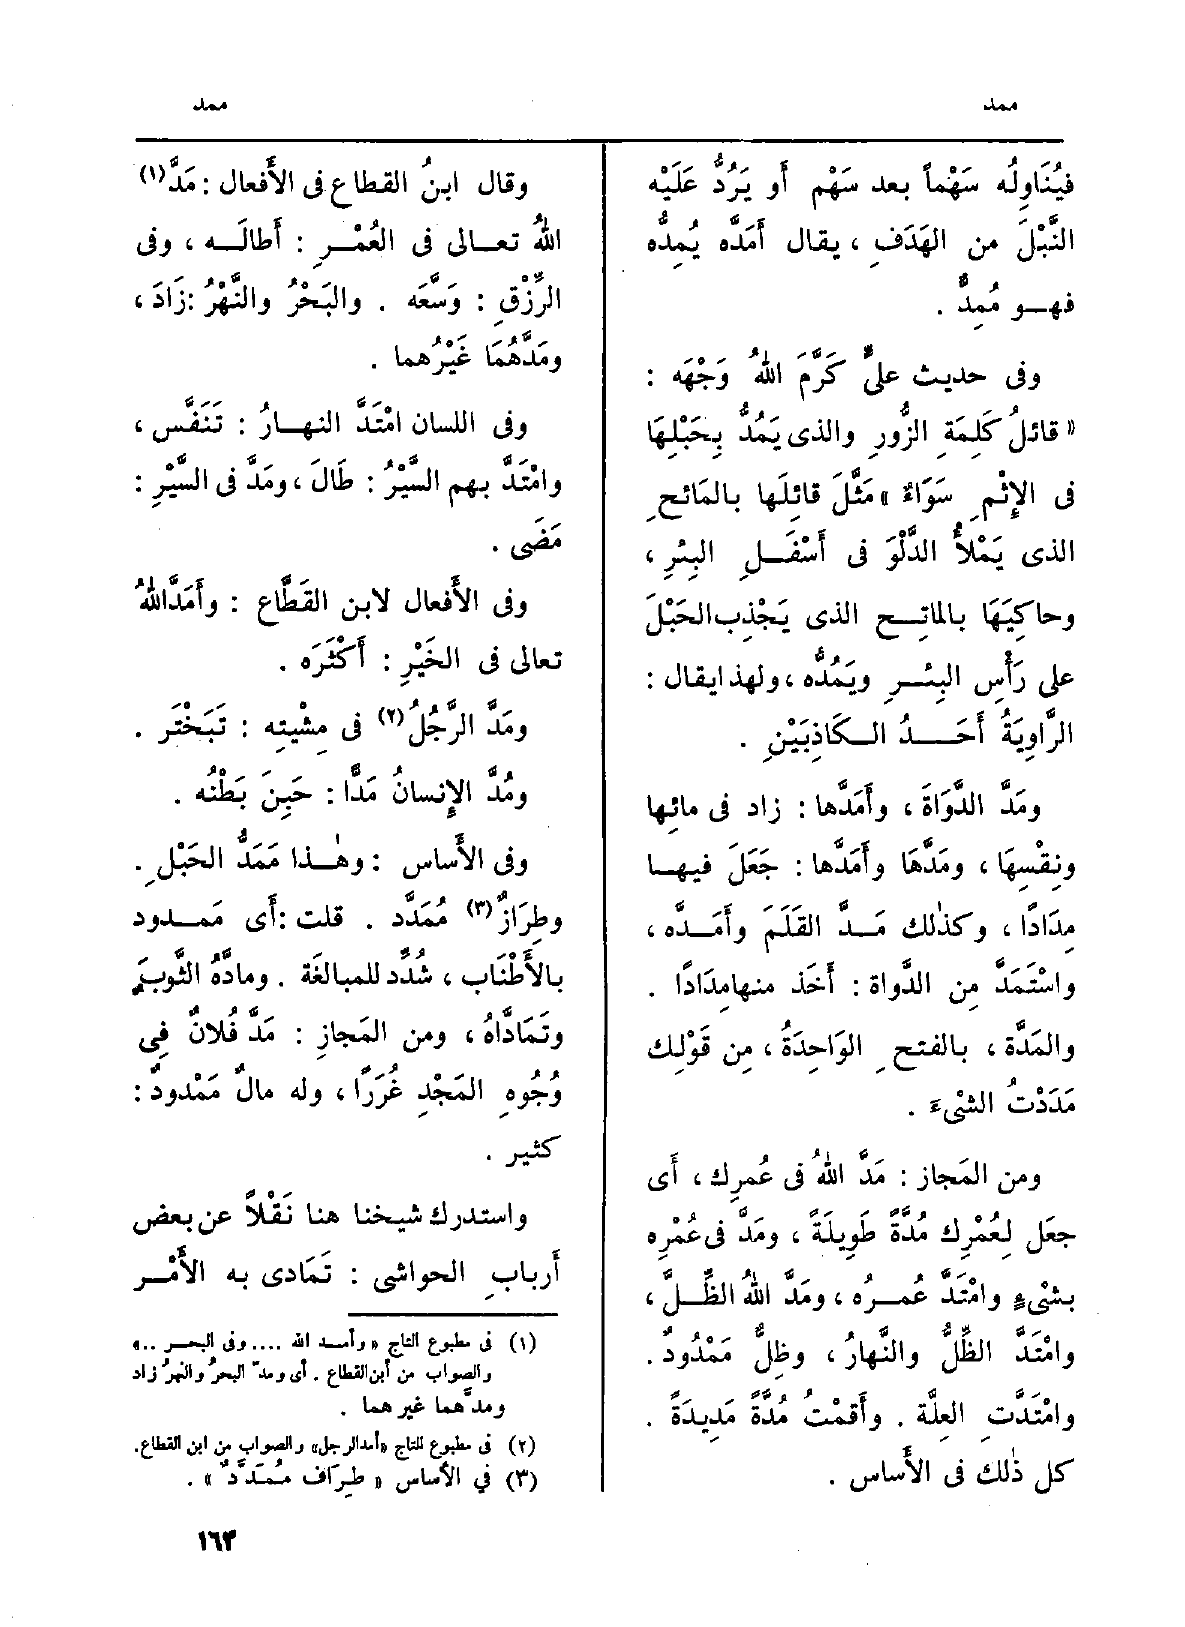 ممدد
ممدد
فيُنَاوِلُه سَهْماً بعد سَهْمٍ أو يَرُدُّ عَلَيْه
النَّبْلَ من الهَدَفِ، يقال أَمَدَّه يُمِدُّه
فهو مُمِدٌّ .
وفى حديث علىٍّ كَرَّمَ اللهُ وَجْهَه :
« قائلُ كَلِمَةِ الزُّورِ والذى يَمُدُّ بِحَبْلِهَا
فى الإِثْمِ سَوَاءٌ » مَثَّلَ قائِلَها بالمَائحِ
الذى يَمْلأُ الدَّلْوَ فى أَسْفَلِ البِئْرِ ،
وحاكِيَهَا بالماتِحِ الذى يَجْذِب الحَبْلَ
على رَأْسِ البِئْرِ ويَمُدُّه ، ولهذا يقال :
الرَّاوِيَةُ أَحَدُ الكَاذِبَيْنِ .
ومَدَّ الدَّوَاةَ ، وأَمَدَّها : زاد فى مائِها
ونِقْسِهَا ، ومَدَّهَا وأَمَدَّها : جَعَلَ فيها
مِدَادًا ، وكذٰلك مَدَّ القَلَمَ وأَمَدَّه ،
واسْتَمَدَّ مِن الدَّواة : أَخَذ منها مِدَادًا .
والمَدَّة ، بالفتحِ الوَاحِدَةُ ، مِن قَوْلِك
مَدَدْتُ الشىْءَ .
ومن المَجاز : مَدَّ اللهُ فى عُمرِك ، أَى
جعَل لِعُمْرِك مُدَّةً طَوِيلَةً ، ومَدَّ فى عُمْرِه
بشىْءٍ وامْتَدَّ عمرُه ، ومَدَّ اللهُ الظِّلَّ ،
وامْتَدَّ الظِّلُّ والنَّهارُ ، وظِلٌّ مَمْدُودٌ .
وامْتَدَّتِ العِلَّة . وأَقمْتُ مُدَّةً مَدِيدَةً .
كل ذٰلك فى الأَساس .
وقال ابنُ القطاع فى الأَفعال : مَدَّ(١)
اللهُ تعالى فى العُمْرِ : أَطالَه ، وفى
الرِّزْقِ : وَسَّعَه . والبَحْرُ والنَّهْرُ : زَادَ ،
ومَدَّهُمَا غَيْرُهما .
وفى اللسان امْتَدَّ النهارُ : تَنَفَّس ،
وامْتَدَّ بهم السَّيْرُ : طَالَ ، ومَدَّ فى السَّيْرِ :
مَضَى .
وفى الأَفعال لابن القَطَّاع : وأَمَدَّ اللهُ
تعالى فى الخَيْرِ : أَكْثَرَه .
ومَدَّ الرَّجُلُ(٢) فى مِشْيتِه : تَبَخْتَر .
ومُدَّ الإِنسانُ مَدًّا : حَبِنَ بَطْنُه .
وفى الأَساس : وهٰذا مَمَدُّ الحَبْلِ .
وطِرَازٌ(٣) مُمَدَّد . قلت : أَى ممدود
بالأَطْنَاب ، شُدِّد للمبالغَة . ومادَّهُ الثَّوبَ
وتَمَادَّاهُ ، ومن المَجازِ : مَدَّ فُلانٌ فِى
وُجُوهِ المَجْدِ غُرَرًا ، وله مالٌ مَمْدودٌ :
كثير .
واستدرك شيخنا هنا نَقْلاً عن بعض
أَربابِ الحواشى : تَمَادى به الأَمْر
(١) فى مطبوع التاج « وأمد الله .... وفى البحر .. »
والصواب من ابن القطاع . أى ومدّ البحرُ والنهرُ زاد
ومدَّهما غيرهما .
(٢) فى مطبوع التاج «أمد الرجل» والصواب من ابن القطاع.
(٣) في الأساس « طِرَاف مُمَدَّدٌ » .
١٦٣